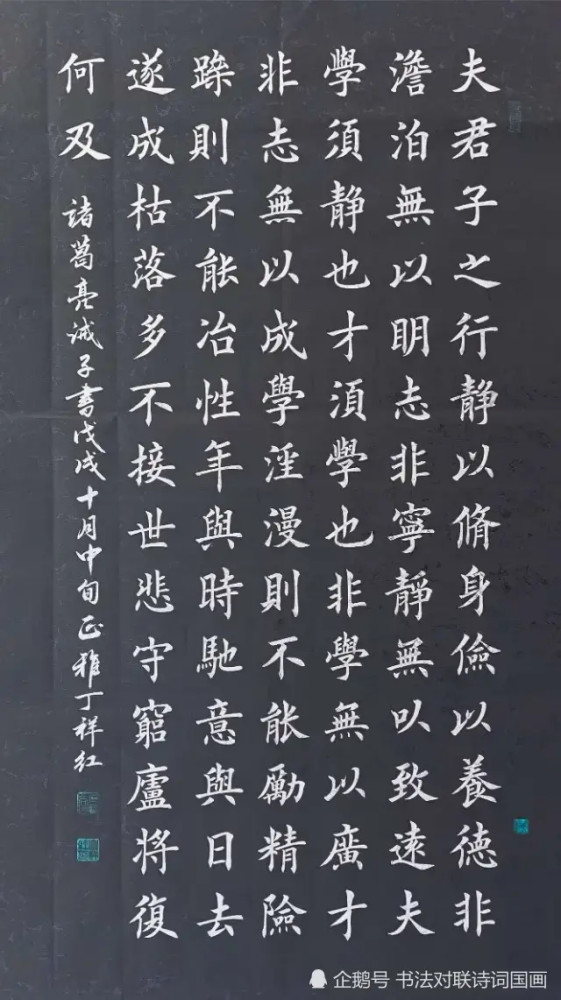 夫君子之行静以脩身儉以養德非
澹泊無以明志非寧靜無以致遠夫
學須静也才須學也非學無以廣才
非志無以成學淫漫則不能勵精險
躁則不能冶性年與時馳意與日去
遂成枯落多不接世悲守窮廬將復
何及
諸葛亮誡子書戊戌十月中旬正雅丁祥红
企鹅号 书法对联诗词国画